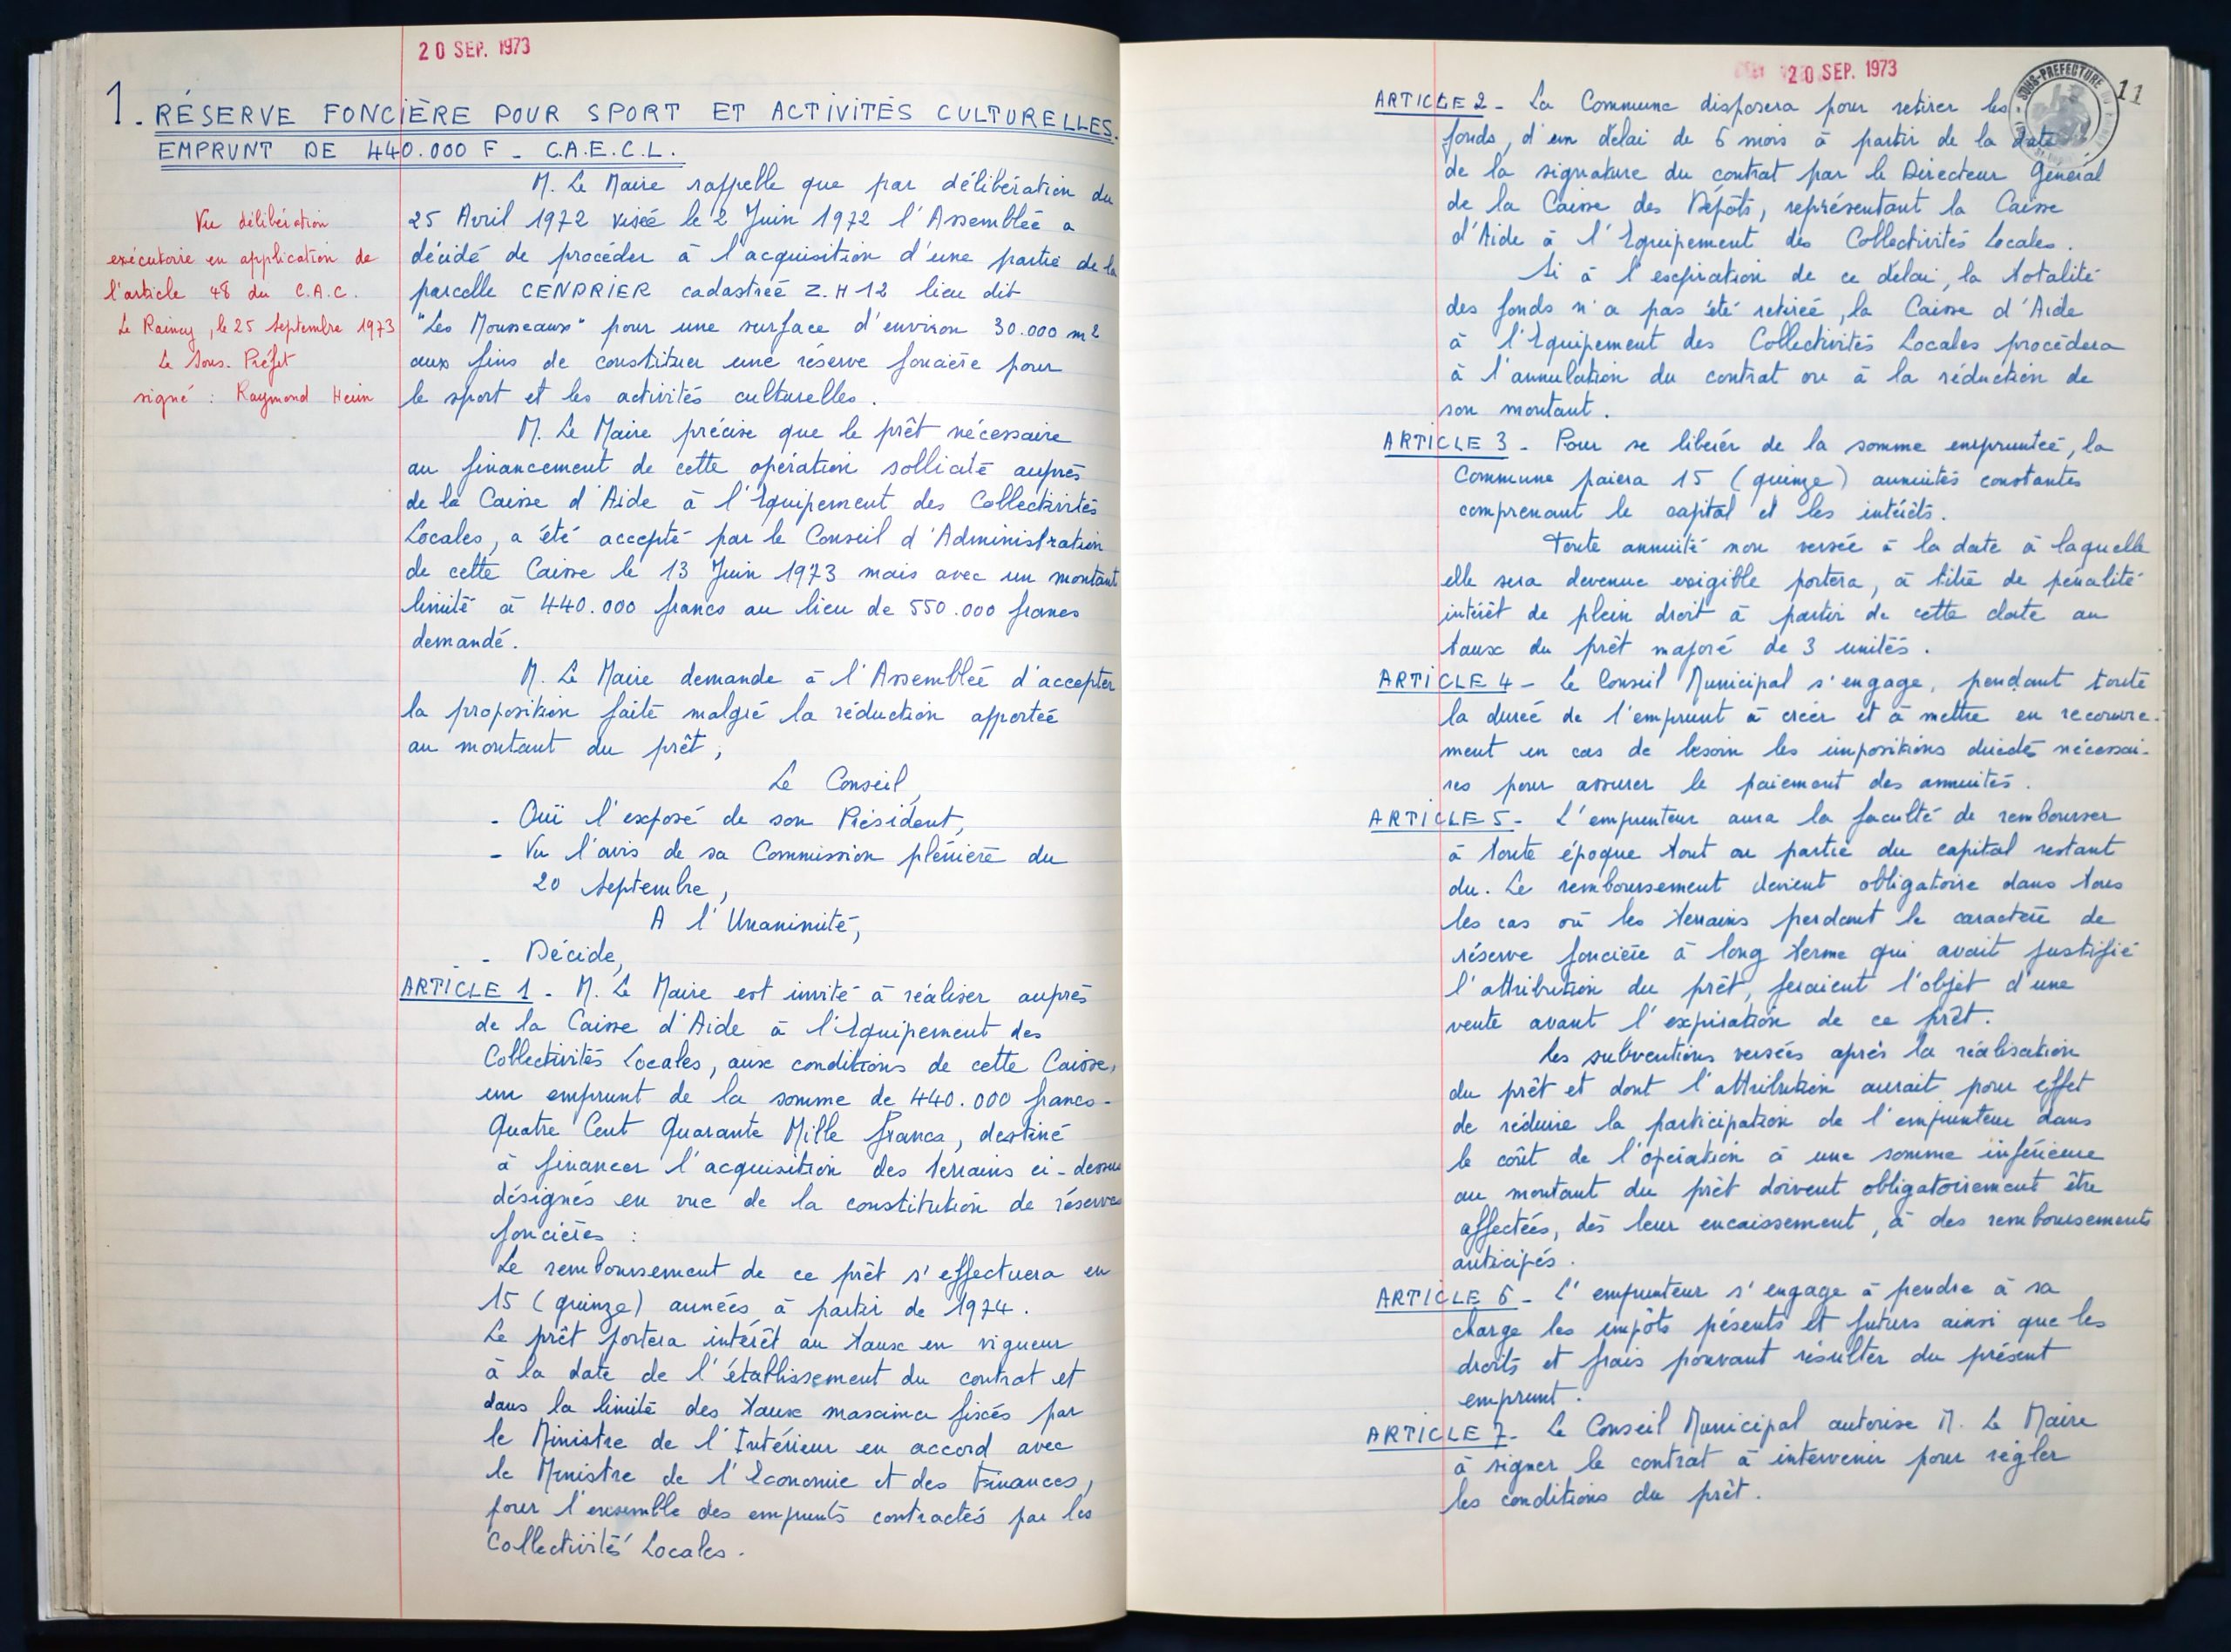 20 SEP. 1973
1. RÉSERVE FONCIÈRE POUR SPORT ET ACTIVITÉS CULTURELLES.
EMPRUNT DE 440.000 F - C.A.E.C.L.
Vu délibération
exécutoire en application de
l'article 48 du C.A.C.
Le Raincy, le 25 Septembre 1973
Le Sous-Préfet
signé : Raymond Heim
M. Le Maire rappelle que par délibération du
25 Avril 1972 visée le 2 Juin 1972 l'Assemblée a
décidé de procéder à l'acquisition d'une partie de la
parcelle CENDRIER cadastrée Z.H 12 lieu dit
"Les Mousseaux" pour une surface d'environ 30.000 m2
aux fins de constituer une réserve foncière pour
le sport et les activités culturelles.
M. Le Maire précise que le prêt nécessaire
au financement de cette opération sollicité auprès
de la Caisse d'Aide à l'Equipement des Collectivités
Locales, a été accepté par le Conseil d'Administration
de cette Caisse le 13 Juin 1973 mais avec un montant
limité à 440.000 francs au lieu de 550.000 francs
demandé.
M. Le Maire demande à l'Assemblée d'accepter
la proposition faite malgré la réduction apportée
au montant du prêt ;
Le Conseil,
- Ouï l'exposé de son Président,
- Vu l'avis de sa Commission plénière du
20 Septembre,
A l'Unanimité,
- Décide,
ARTICLE 1 - M. Le Maire est invité à réaliser auprès
de la Caisse d'Aide à l'Equipement des
Collectivités Locales, aux conditions de cette Caisse,
un emprunt de la somme de 440.000 francs -
Quatre Cent Quarante Mille francs, destiné
à financer l'acquisition des terrains ci-dessus
désignés en vue de la constitution de réserves
foncières :
Le remboursement de ce prêt s'effectuera en
15 (quinze) années à partir de 1974.
Le prêt portera intérêt au taux en vigueur
à la date de l'établissement du contrat et
dans la limite des taux maxima fixés par
le Ministre de l'Intérieur en accord avec
le Ministre de l'Economie et des Finances,
pour l'ensemble des emprunts contractés par les
Collectivités Locales.
20 SEP. 1973
SOUS-PREFECTURE
11
ARTICLE 2 - La Commune disposera pour retirer les
fonds, d'un délai de 6 mois à partir de la date
de la signature du contrat par le Directeur Général
de la Caisse des Dépôts, représentant la Caisse
d'Aide à l'Equipement des Collectivités Locales.
Si à l'expiration de ce délai, la totalité
des fonds n'a pas été retirée, la Caisse d'Aide
à l'Equipement des Collectivités Locales procédera
à l'annulation du contrat ou à la réduction de
son montant.
ARTICLE 3 - Pour se libérer de la somme empruntée, la
Commune paiera 15 (quinze) annuités constantes
comprenant le capital et les intérêts.
Toute annuité non versée à la date à laquelle
elle sera devenue exigible portera, à titre de pénalité
intérêt de plein droit à partir de cette date au
taux du prêt majoré de 3 unités.
ARTICLE 4 - Le Conseil Municipal s'engage, pendant toute
la durée de l'emprunt à créer et à mettre en recouvre-
ment en cas de besoin les impositions directes nécessai-
res pour assurer le paiement des annuités.
ARTICLE 5 - L'emprunteur aura la faculté de rembourser
à toute époque tout ou partie du capital restant
du. Le remboursement devient obligatoire dans tous
les cas où les terrains perdant le caractère de
réserve foncière à long terme qui avait justifié
l'attribution du prêt, feraient l'objet d'une
vente avant l'expiration de ce prêt.
Les subventions versées après la réalisation
du prêt et dont l'attribution aurait pour effet
de réduire la participation de l'emprunteur dans
le coût de l'opération à une somme inférieure
au montant du prêt doivent obligatoirement être
affectées, dès leur encaissement, à des remboursements
anticipés.
ARTICLE 6 - L'emprunteur s'engage à prendre à sa
charge les impôts présents et futurs ainsi que les
droits et frais pouvant résulter du présent
emprunt.
ARTICLE 7 - Le Conseil Municipal autorise M. Le Maire
à signer le contrat à intervenir pour régler
les conditions du prêt.